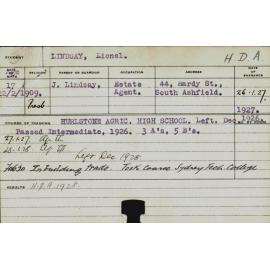 STUDENT LINDSAY, Lionel. H D A
DATE RELIGION PARENT OR GUARDIAN OCCUPATION ADDRESS
17
22/2/1909. Presb J. Lindsay, Estate Agent. 44, Hardy St., South Ashfield. 26.1.27.
1927.
COURSE OF TRAINING HURLSTONE AGRIC. HIGH SCHOOL. Left. Dec. 1926.
Passed Intermediate, 1926. 3 A's, 5 B's.
27.1.27. Ag II
25.1.28. Ag III
Left Dec 1928
Feb 30 In building trade. Tech Course Sydney Tech College
RESULTS H.D.A 1928.